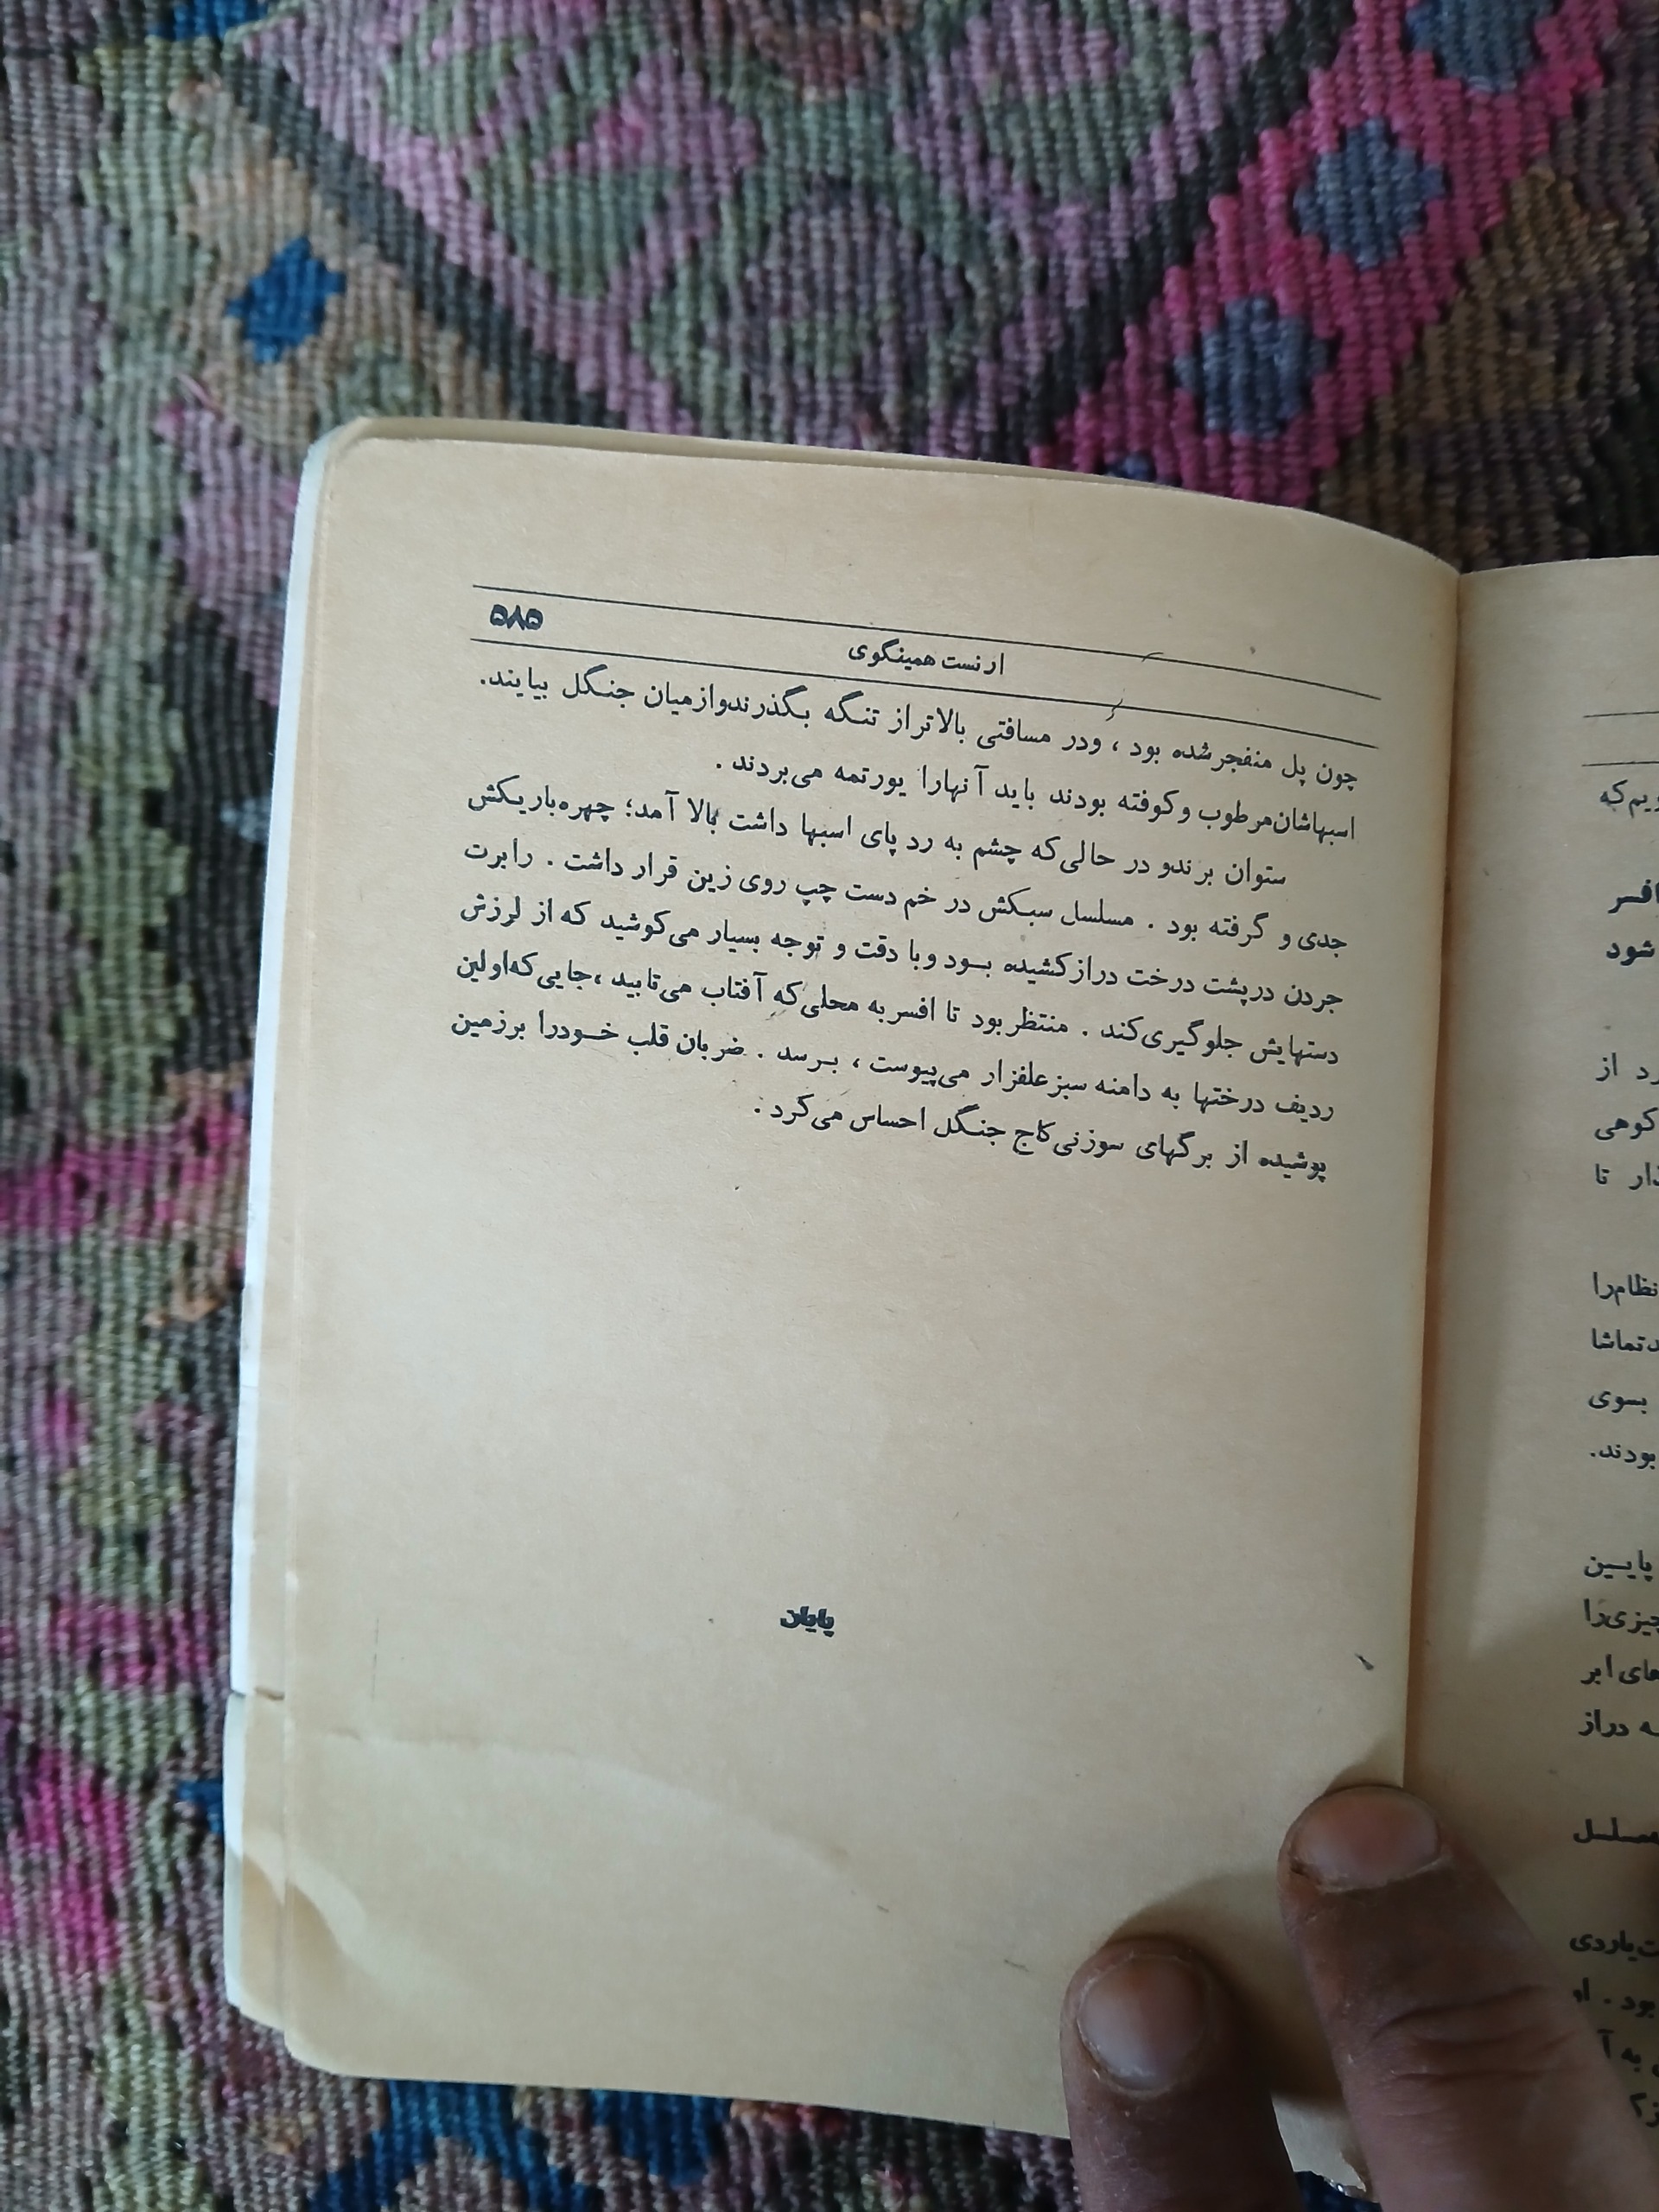 ۵۸۵
ارنست همینگوی
چون پل منفجرشده بود ، ودر مسافتی بالاتراز تنگه بگذرندوازمیان جنگل بیایند.
اسبهاشان‌مرطوب وکوفته بودند باید آنهارا یورتمه می‌بردند .
ستوان برندو در حالی‌که چشم به رد پای اسبها داشت بالا آمد؛ چهره‌باریکش
جدی و گرفته بود . مسلسل سبکش در خم دست چپ روی زین قرار داشت . رابرت
جردن درپشت درخت درازکشیده بود وبا دقت و توجه بسیار می‌کوشید که از لرزش
دستهایش جلوگیری‌کند . منتظربود تا افسربه محلی‌که آفتاب می‌تابید ،جایی‌که‌اولین
ردیف درختها به دامنه سبزعلفزار می‌پیوست ، برسد . ضربان قلب خودرا برزمین
پوشیده از برگهای سوزنی‌کاج جنگل احساس می‌کرد .
پایان
شود
رد از
کوهی
تا
نظام‌را
بسوی
بودند.
پایین
چیزی‌را
های ابر
دراز
مسلسل
بود . او
به آ